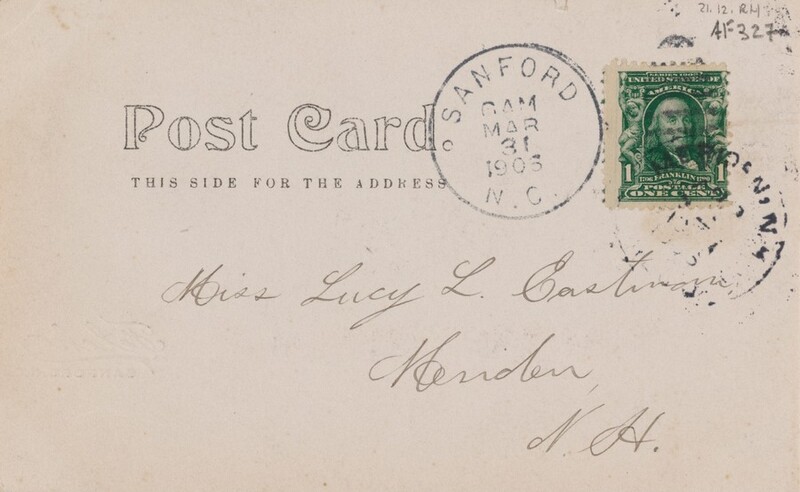 21.12.RH
AF327
Post Card.
THIS SIDE FOR THE ADDRESS
SANFORD
6AM
MAR
31
1903
N.C.
SERIES 1902
UNITED STATES OF
AMERICA
1 1706 FRANKLIN 1790 1
POSTAGE
ONE CENT
Miss Lucy L. Eastman
Meriden,
N. H.